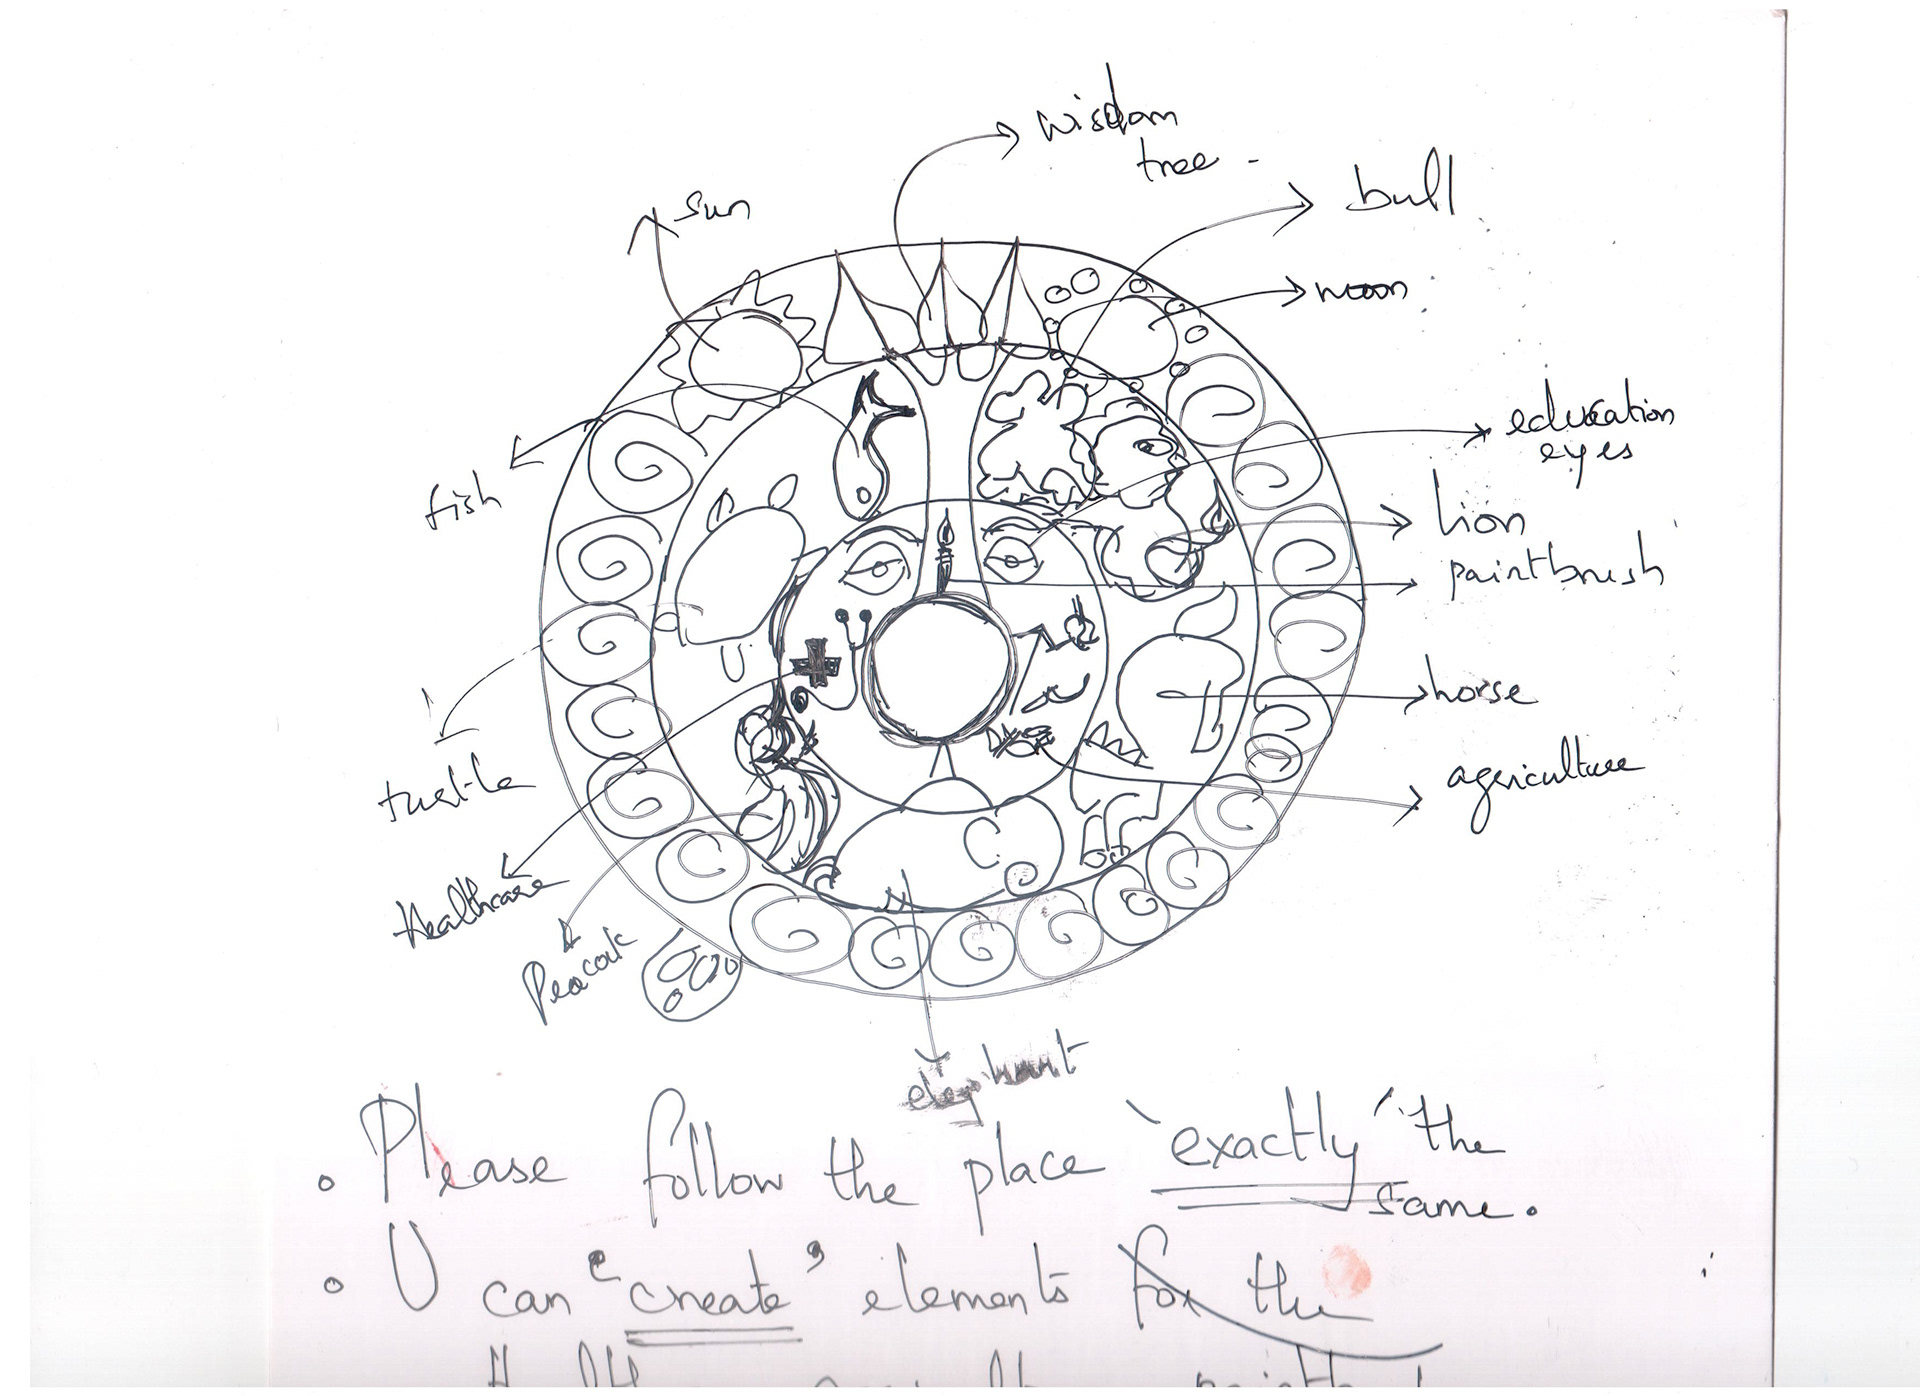 wisdom
tree -
sun
bull
moon
education
eyes
fish
lion
paintbrush
horse
turtle
agriculture
Healthcare
Peacock
elephant
• Please follow the place "exactly" the
same.
• U can "create" elements for the